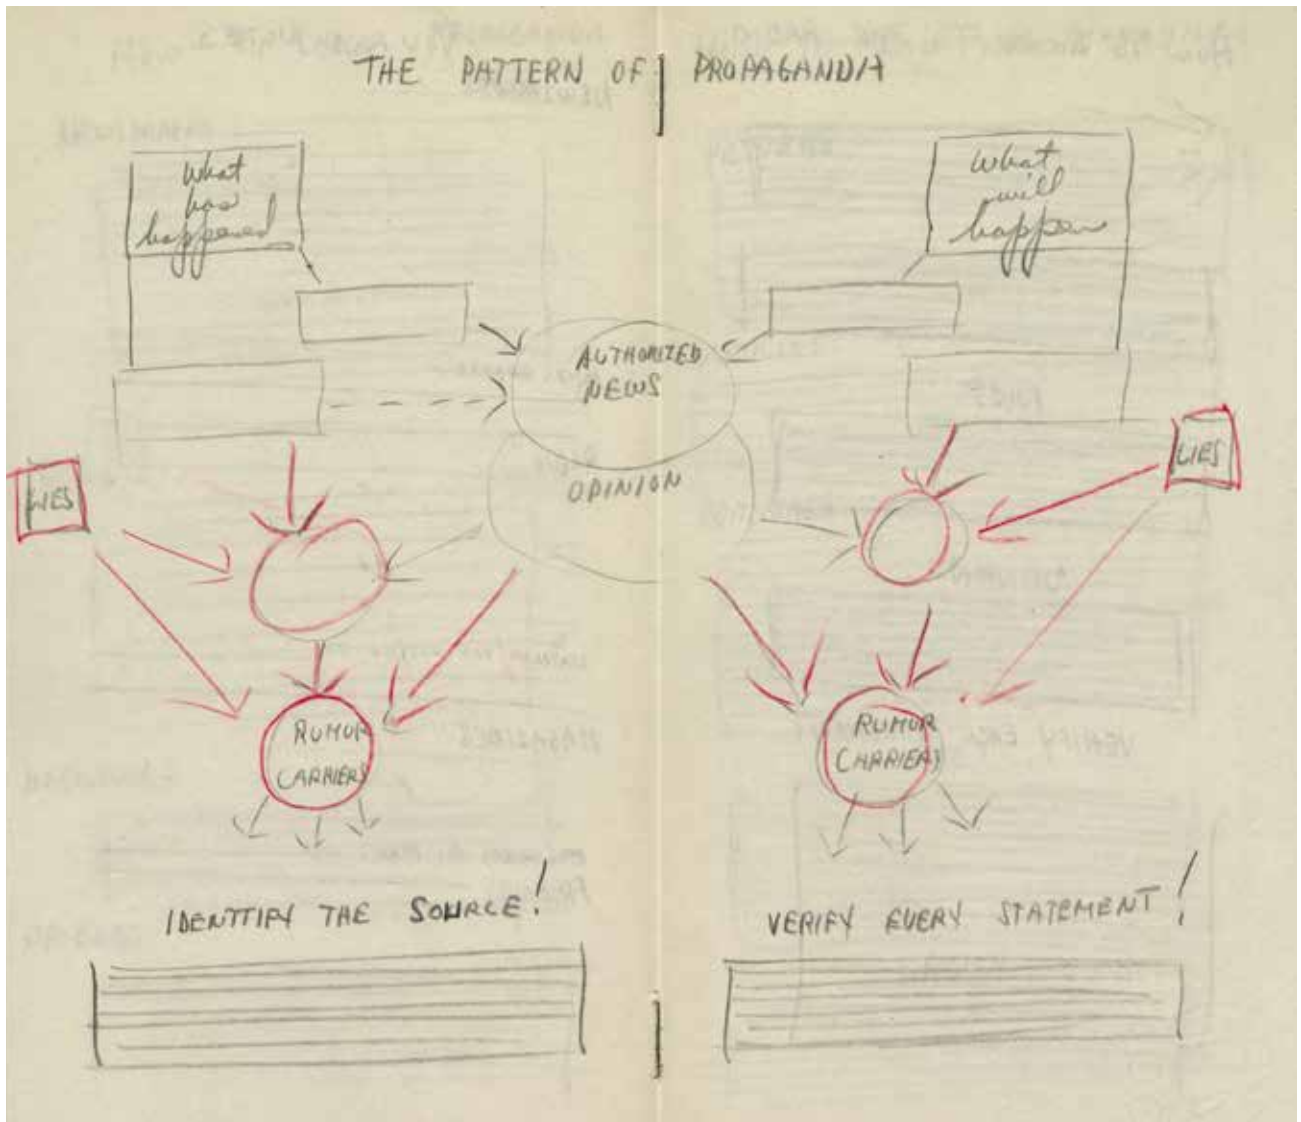 THE PATTERN OF PROPAGANDA
What
has
happened
What
will
happen
AUTHORIZED
NEWS
OPINION
LIES
LIES
RUMOR
CARRIERS
RUMOR
CARRIERS
IDENTIFY THE SOURCE!
VERIFY EVERY STATEMENT!